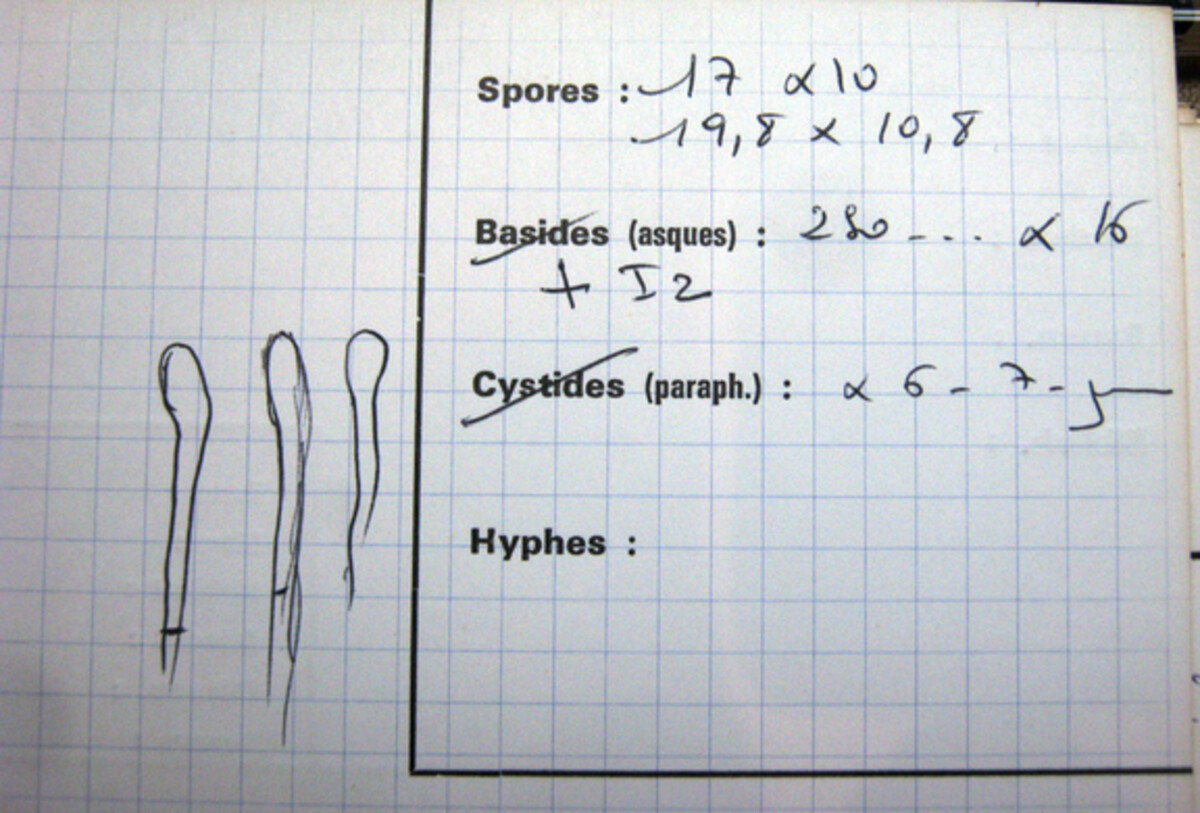 Spores : 17 x 10
19,8 x 10,8
Basides (asques) : 280 - - . . x 16
+ I2
Cystides (paraph.) : x 6 - 7 -
Hyphes :